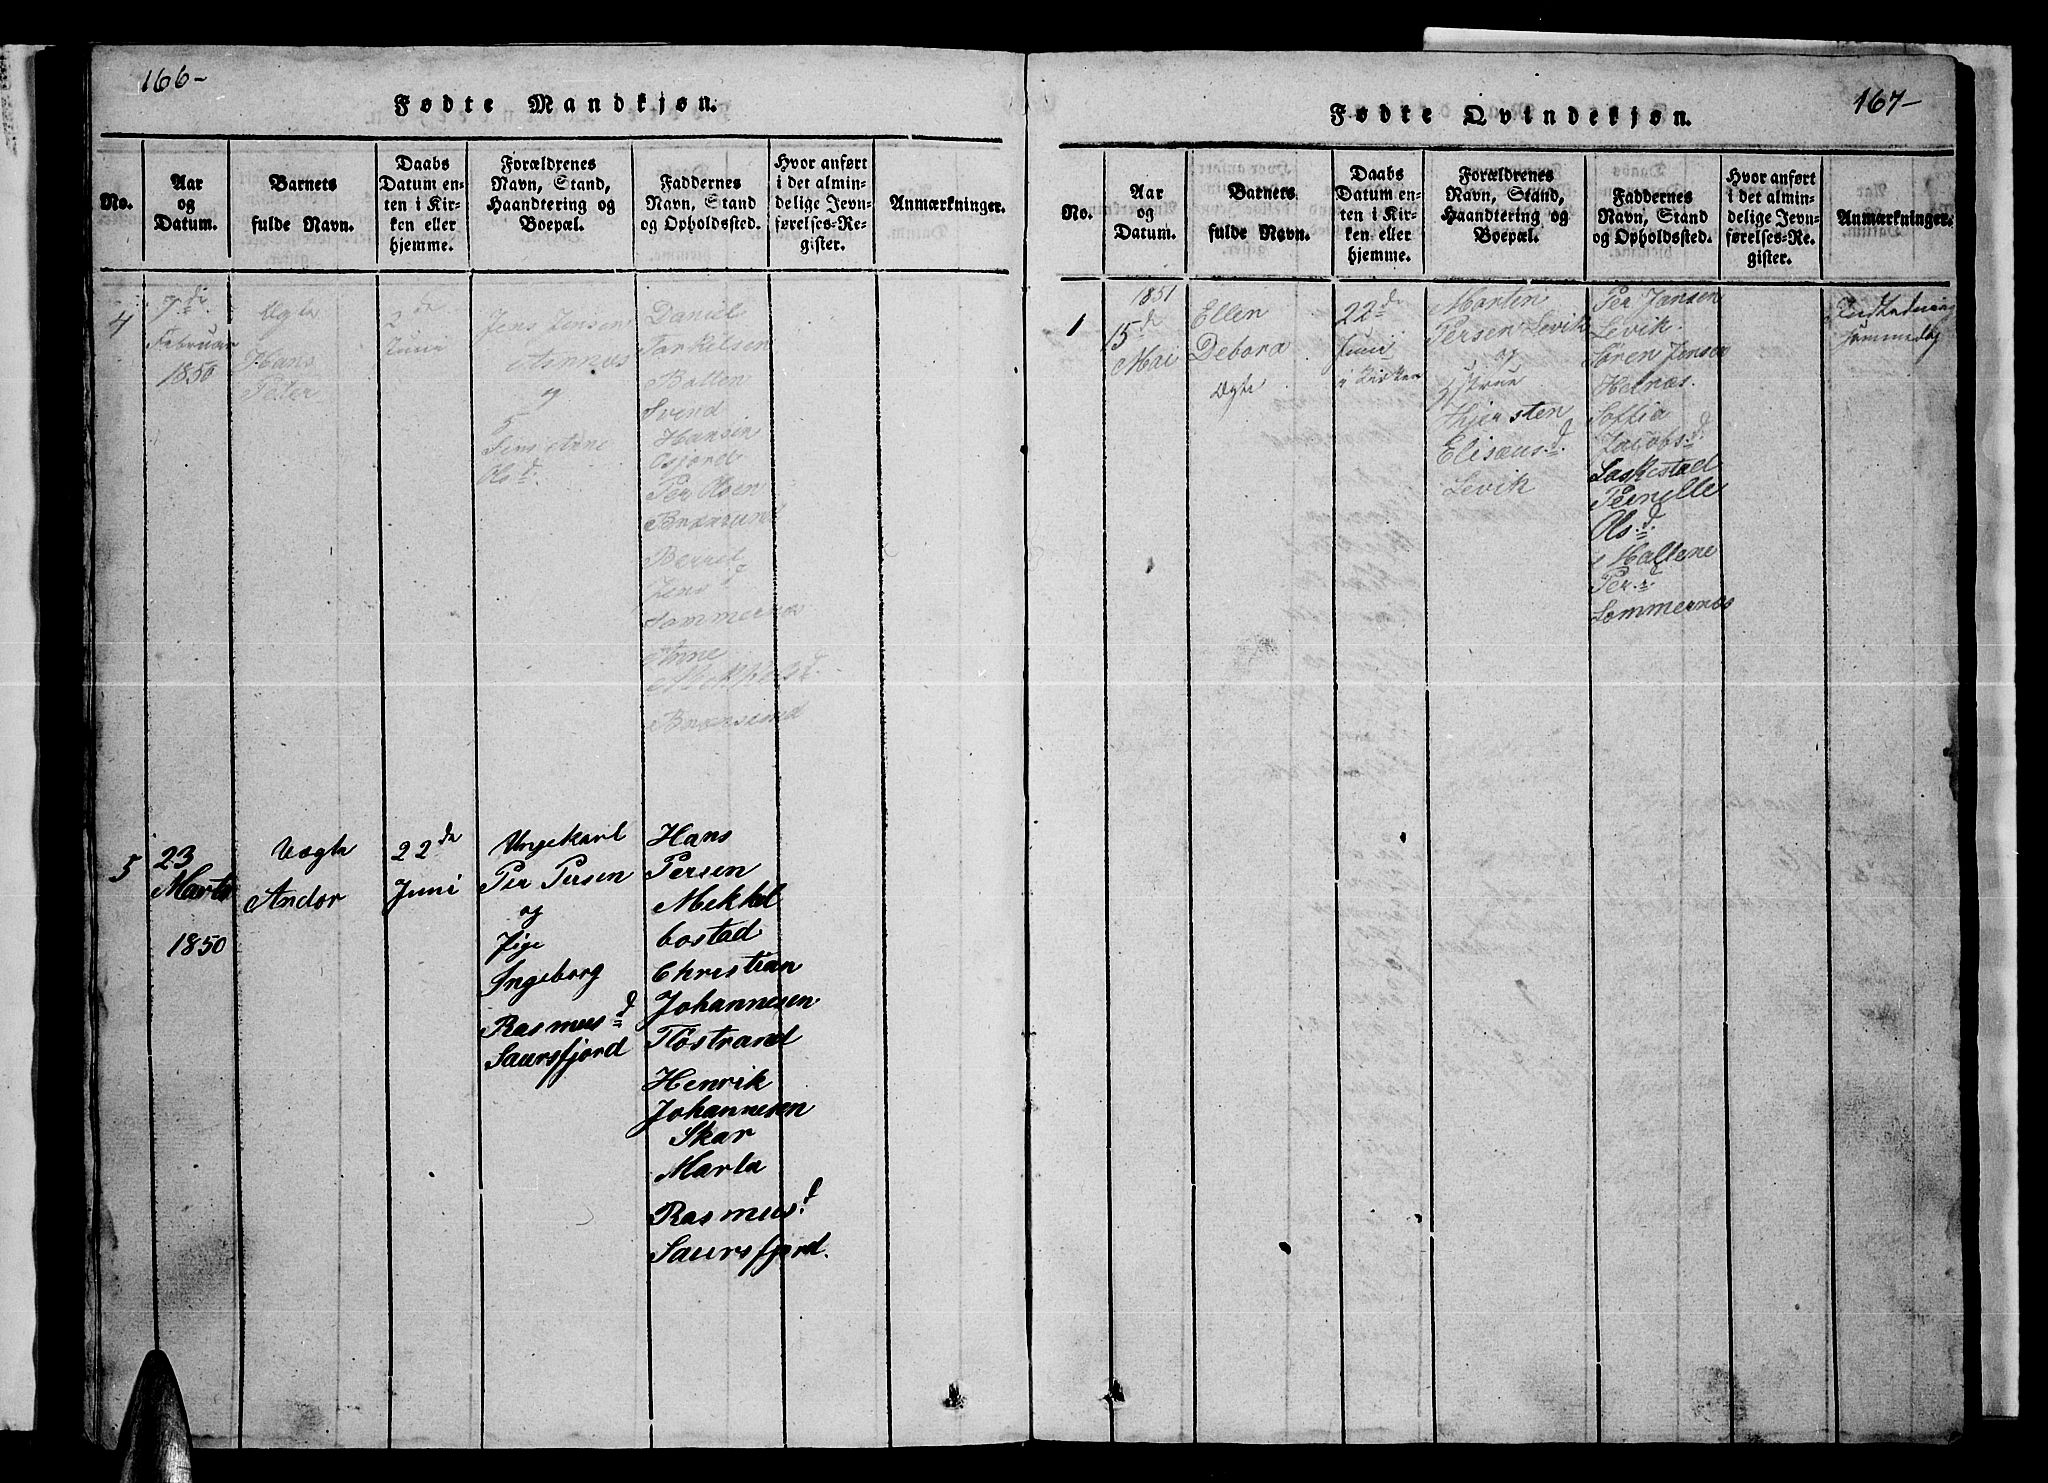 166-
Fødte Mandkjøn.
No.
Aar
og
Datum.
Barnets
fulde Navn.
Daabs
Datum en-
ten i Kir-
ken eller
hjemme.
Forældrenes
Navn, Stand,
Haandtering og
Boepæl.
Faddernes
Navn, Stand
og Opholdssted.
Hvor anført
i det almin-
delige Jevn-
førelses-Re-
gister.
Anmærkninger.
4
7de
Februar
1850
Ægte
Hans
Peter
2de
Juni
Jens Jensen
Asnnæs
og
Olsd.
Daniel
Torkilsen
Balten
Svend
Hansen
Osjord
Per Olsen
Brænsund
Berret
Jensd
Sommernæs
Anne
Brænsund
5
23
Marts
1850
Uægte
Andor
22de
Juni
Ungekarl
Per Persen
og
Pige
Ingeborg
Rasmusd
Saursfjord
Hans
Persen
Mekkel
bostad
Christian
Johannesen
Flostrand
Henrik
Johannesen
Skar
Marta
Rasmusd.
Saursfjord.
167-
Fødte Qvindekjøn.
No.
Aar
og
Datum.
Barnets
fulde Navn.
Daabs
Datum en-
ten i Kir-
ken eller
hjemme.
Forældrenes
Navn, Stand,
Haandtering og
Boepæl.
Faddernes
Navn, Stand
og Opholdssted.
Hvor anført
i det almin-
delige Jevn-
førelses-Re-
gister.
Anmærkninger.
1
1851
15de
Mai
Ellen
Debora
Ægte
22de
Juni
i Kirken
Morten
Persen Levik
og
Hustrue
Kjersten
Elisæusd.
Levik
Per Jansen
Levik
Søren Jensen
Helnæs
Soffia
Jacobsd.
Laskestad
Pernille
Olsd.
Mallene
Persd
Sommernæs